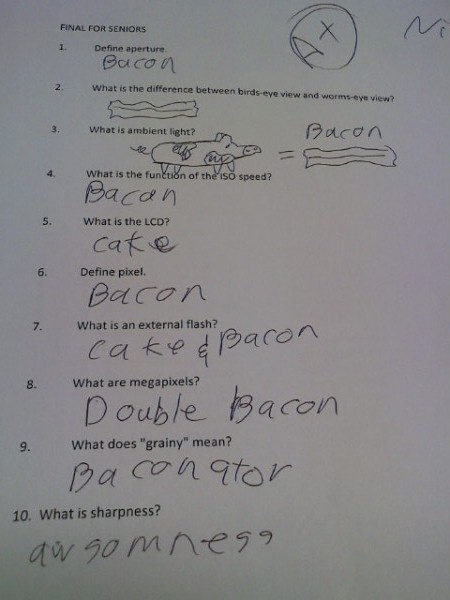 FINAL FOR SENIORS
A+
Ni
1. Define aperture.
Bacon
2. What is the difference between birds-eye view and worms-eye view?
3. What is ambient light?
= Bacon
4. What is the function of the ISO speed?
Bacan
5. What is the LCD?
cake
6. Define pixel.
Bacon
7. What is an external flash?
cake & Bacon
8. What are megapixels?
Double Bacon
9. What does "grainy" mean?
Baconator
10. What is sharpness?
awsomness